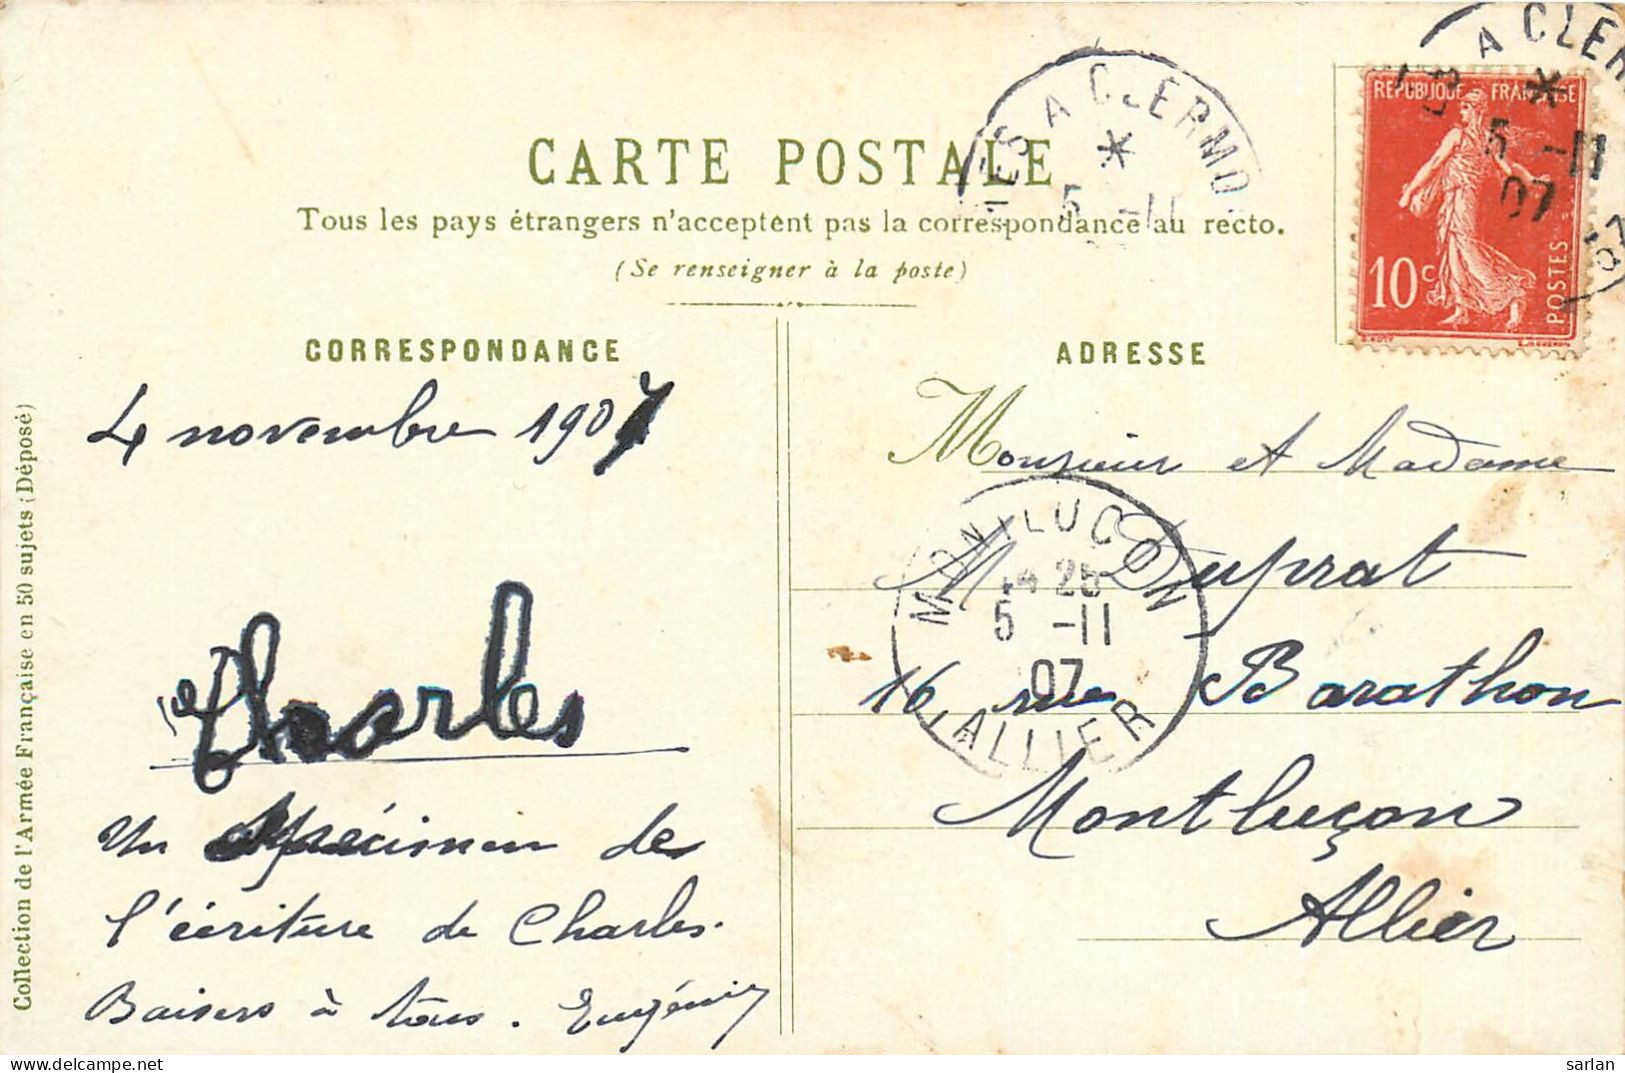 CARTE POSTALE
Tous les pays étrangers n'acceptent pas la correspondance au recto.
(Se renseigner à la poste)
CORRESPONDANCE
4 novembre 1907
Charles
Un spécimen de
l'écriture de Charles.
Baisers à tous. Eugénie
Collection de l'Armée Française en 50 sujets (Déposé)
ADRESSE
Monsieur et Madame
M Duprat
16 rue Barathon
Montluçon
Allier
MONTLUCON
5 -11
07
ALLIER
A CLERMO
5 -11
REPUBLIQUE FRANÇAISE
10c
POSTES
A CLER
5 -11
07
sarlan